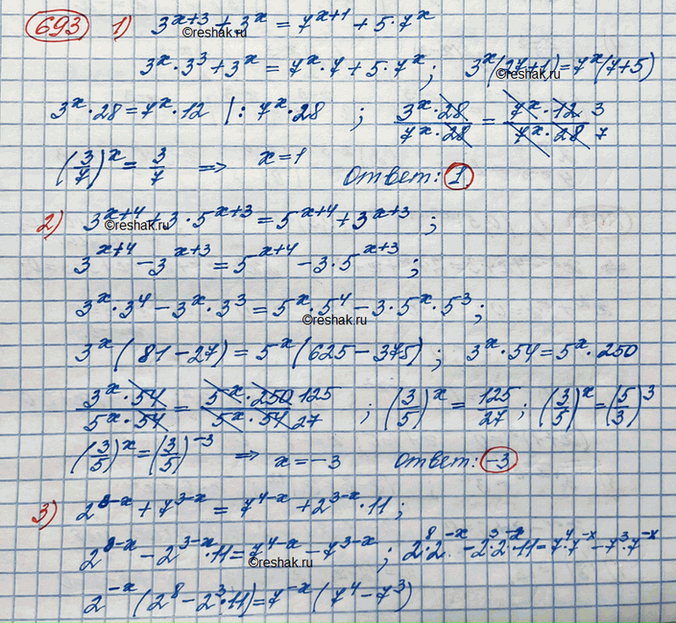 693 1) 3^(x+3) + 3^x = 7^(x+1) + 5·7^x
©reshak.ru
3^x·3^3 + 3^x = 7^x·7 + 5·7^x; 3^x(27+1) = 7^x(7+5)
©reshak.ru
3^x·28 = 7^x·12 |: 7^x·28 ; (3^x·28)/(7^x·28) = (7^x·12)/(7^x·28) 3/7
(3/7)^x = 3/7 ⇒ x=1 Ответ: 1.
2) 3^(x+4) + 3·5^(x+3) = 5^(x+4) + 3^(x+3) ;
©reshak.ru
3^(x+4) − 3^(x+3) = 5^(x+4) − 3·5^(x+3) ;
3^x·3^4 − 3^x·3^3 = 5^x·5^4 − 3·5^x·5^3 ;
©reshak.ru
3^x(81−27) = 5^x(625−375) ; 3^x·54 = 5^x·250
(3^x·54)/(5^x·54) = (5^x·250)/(5^x·54) 125/27 ; (3/5)^x = 125/27 ; (3/5)^x = (5/3)^3
(3/5)^x = (3/5)^−3 ⇒ x = −3 Ответ: −3
3) 2^(8−x) + 7^(3−x) = 7^(4−x) + 2^(3−x)·11 ;
2^(8−x) − 2^(3−x)·11 = 7^(4−x) − 7^(3−x) ; 2^8·2^−x − 2^3·2^−x·11 = 7^4·7^−x − 7^3·7^−x
©reshak.ru
2^−x(2^8 − 2^3·11) = 7^−x(7^4 − 7^3)